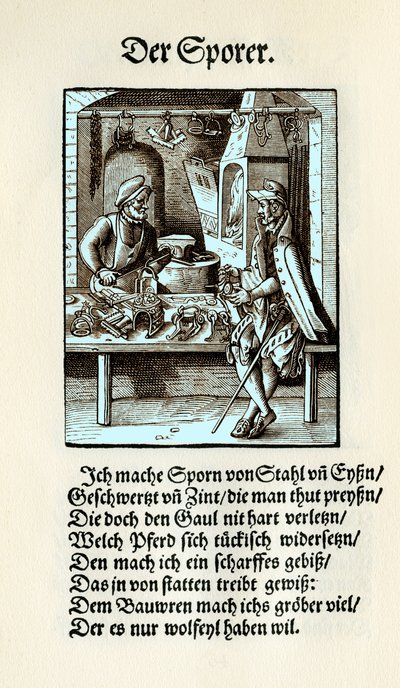 Der Sporer.
Ich mache Sporn von Stahl vn̄ Eyßn/
Geschwertzt vn̄ Zint/die man thut preyßn/
Die doch den Gaul nit hart verletzn/
Welch Pferd sich tückisch widersetzn/
Den mach ich ein scharffes gebiß/
Das jn von statten treibt gewiß:
Dem Bauwren mach ichs gröber viel/
Der es nur wolfeyl haben wil.